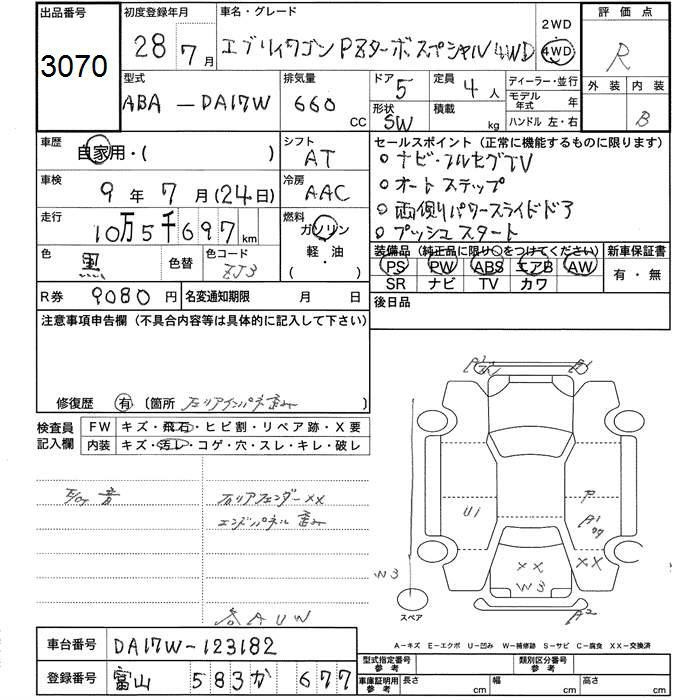 出品番号
3070
初度登録年月
28年 7月
車名・グレード
エブリィワゴン PZターボスペシャル 4WD
2WD
4WD
評価点
R
外装 内装
B
型式
ABA - DA17W
排気量
660 CC
ドア 5
形状 SW
定員 4人
積載 kg
ディーラー・並行
モデル年式 年
ハンドル 左・右
車歴
自家用・( )
シフト
AT
車検
9年 7月(24日)
冷房
AAC
走行
10万5千697km
燃料
ガソリン
軽・油
( ・ )
色 黒 色替 色コード ZJ3
R券 9080円 名変通知期限 月 日
セールスポイント(正常に機能するものに限ります)
○ナビ・フルセグTV
○オートステップ
○両側パワースライドドア
○プッシュスタート
装備品(純正品に限り○をつけてください) 新車保証書
PS PW ABS エアB AW
SR ナビ TV カワ
有・無
後日品
注意事項申告欄(不具合内容等は具体的に記入して下さい)
修復歴 有 〔箇所 左リアインパネ歪み 〕
検査員記入欄
FW キズ・飛石・ヒビ割・リペア跡・X要
内装 キズ・汚レ・コゲ・穴・スレ・キレ・破レ
左リアフェンダーXX
エンドパネル歪み
各AUW
A1
A1
U1
P
A1
XX
XX
W3
W3
A2
スペア
A-キズ E-エクボ U-凹み W-補修跡 S-サビ C-腐食 XX-交換済
車台番号 DA17W-123182
登録番号 富山 583 か 677
型式指定番号 参考
類別区分番号 参考
車庫証明用 参考 長さ cm 幅 cm 高さ cm